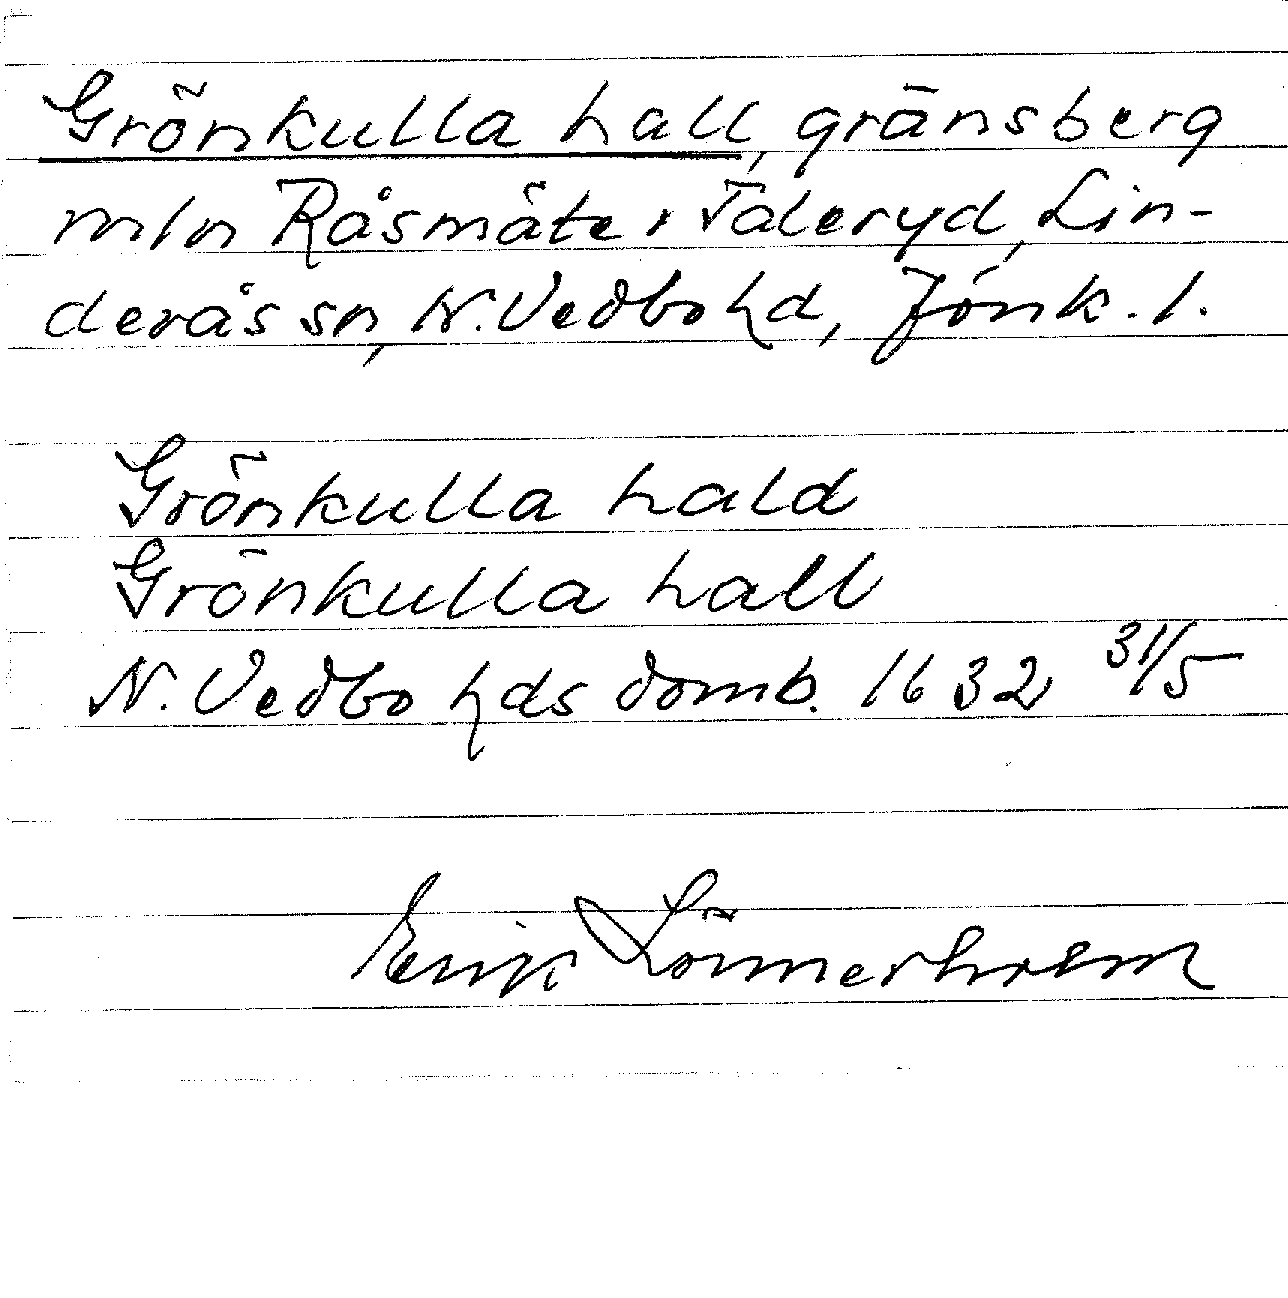 Grönkulla hall, gränsberg
mln Råsmäte, Taleryd, Lin-
derås sn, N. Vedbo hd, Jönk. l.
Grönkulla hald
Grönkulla hall
N. Vedbo hds domb. 1632 31/5
Erik Lönnerholm